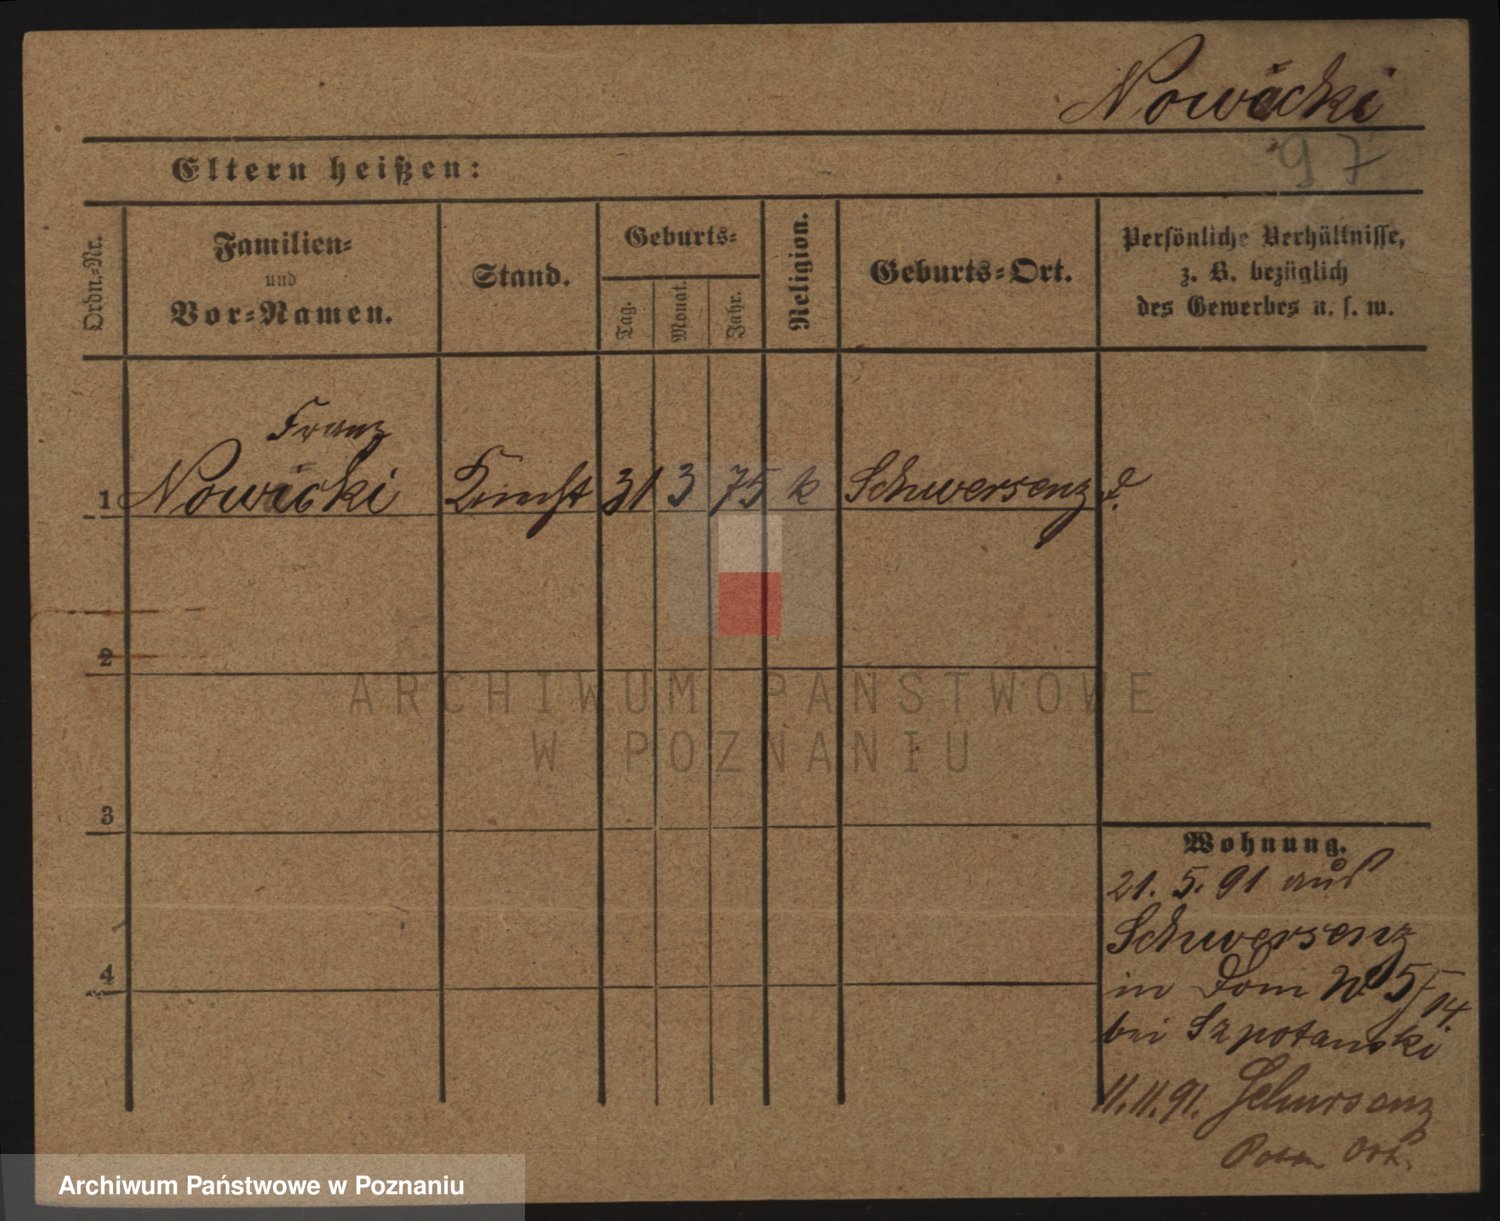 Nowacki
97
Eltern heißen:
Ordn.-Nr.
Familien-
und
Vor-Namen.
Stand.
Geburts-
Tag.
Monat.
Jahr.
Religion.
Geburts-Ort.
Persönliche Verhältnisse,
z. B. bezüglich
des Gewerbes u. s. w.
Franz
1 Nowacki Knecht 31 3 75 k Schwersenz
2
3
4
ARCHIWUM PAŃSTWOWE
W POZNANIU
Wohnung.
21. 5. 91 aus
Schwersenz
in Dom 5/14.
bei Szpotanski
11.11.91.
Archiwum Państwowe w Poznaniu